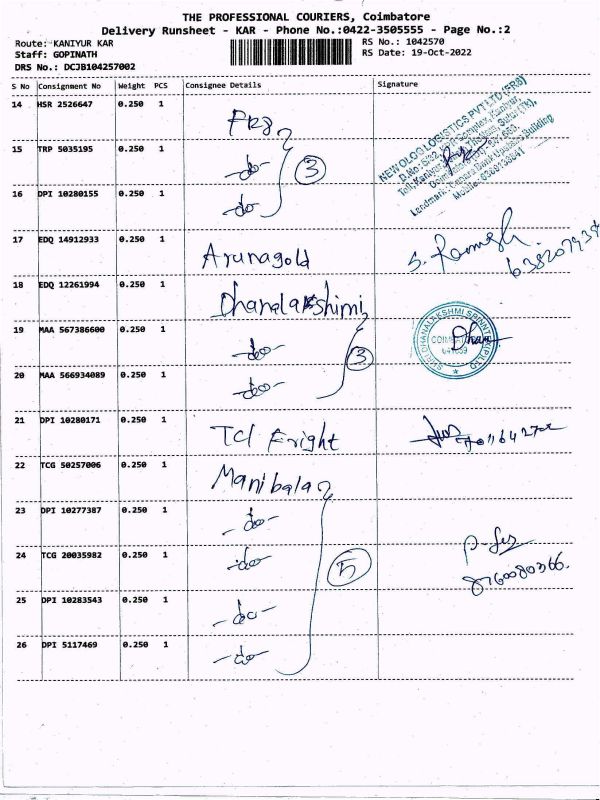 THE PROFESSIONAL COURIERS, Coimbatore
Delivery Runsheet - KAR - Phone No.:0422-3505555 - Page No.:2
Route: KANIYUR KAR
Staff: GOPINATH
DRS No.: DCJB104257002
RS No.: 1042570
RS Date: 19-Oct-2022
S No Consignment No Weight PCS Consignee Details Signature
14 HSR 2526647 0.250 1 FR8
15 TRP 5035195 0.250 1 -do-
16 DPI 10280155 0.250 1 -do-
3
NEW OLOG LOGISTICS PVT LTD (FR8)
17 EDQ 14912933 0.250 1 Arunagold S. Ramesh
18 EDQ 12261994 0.250 1 Dhanalakshimi
19 MAA 567386600 0.250 1 -do-
20 MAA 566934089 0.250 1 -do-
3
21 DPI 10280171 0.250 1 TCI Fright
22 TCG 50257006 0.250 1 Manibala
23 DPI 10277387 0.250 1 -do-
24 TCG 20035982 0.250 1 -do-
25 DPI 10283543 0.250 1 -do-
26 DPI 5117469 0.250 1 -do-
5
8760080366.